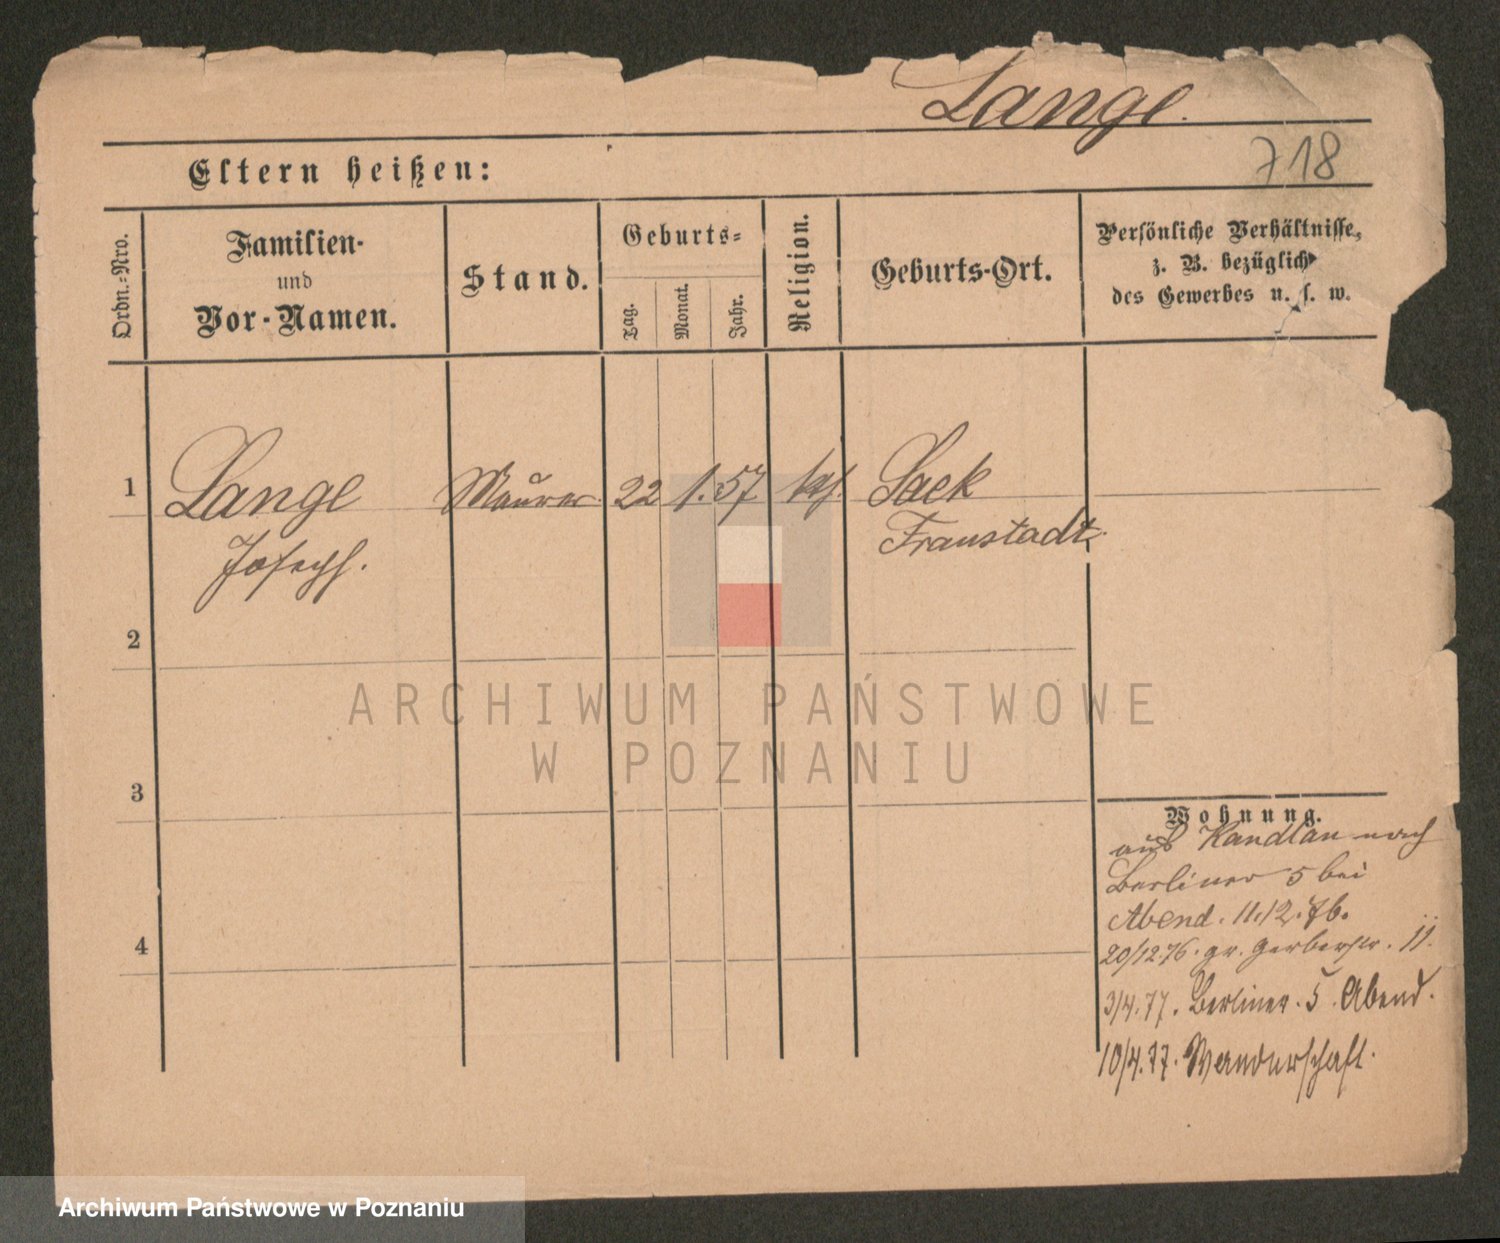 Lange.
718
Eltern heißen:
Ordn.-Nro.
Familien-
und
Vor-Namen.
Stand.
Geburts-
Tag.
Monat.
Jahr.
Religion.
Geburts-Ort.
Persönliche Verhältnisse,
z. B. bezüglich
des Gewerbes u. s. w.
1 Lange Maurer. 22 1. 57 kath. Lack
Joseph. Fraustadt.
2
3
4
Wohnung.
aus Kandlau nach
Berliner 5 bei
Abend. 11.12.76.
20/12 76. gr. Gerberstr. 11.
3/4.77. Berliner. 5. Abend.
10/4.77. Wanderschaft.
ARCHIWUM PAŃSTWOWE
W POZNANIU
Archiwum Państwowe w Poznaniu